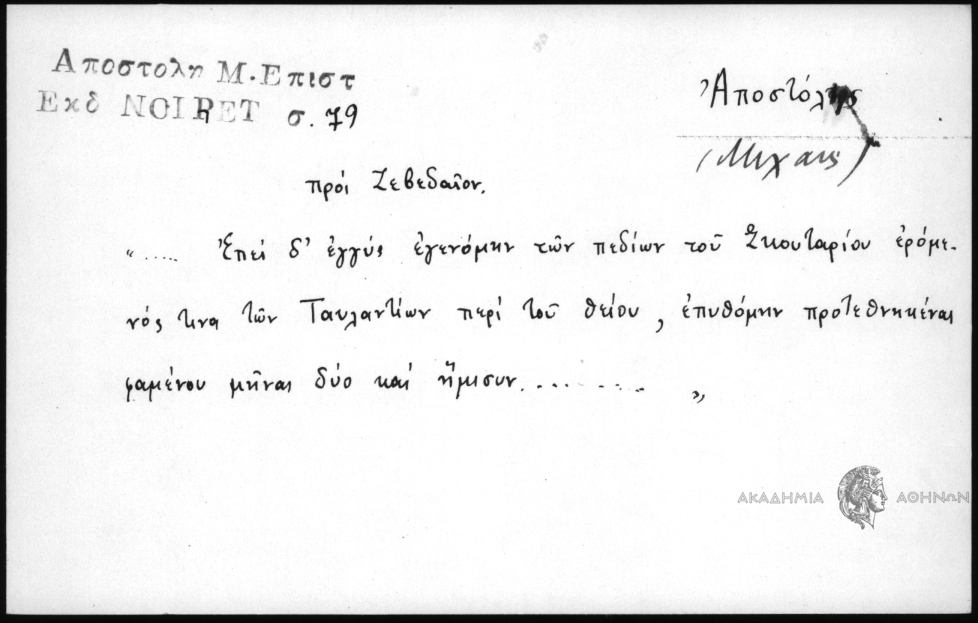 Αποστολη Μ. Επιστ
Εκδ NOIRET σ. 79
Ἀποστόλης
(Μιχαης)
πρός Ζεβεδαῖον.
"..... Ἐπεί δ' ἐγγύς ἐγενόμην τῶν πεδίων τοῦ Σκουταρίου ἐρόμε-
νός τινα τῶν Ταυλαντίων περί τοῦ θείου, ἐπυθόμην προτεθνηκέναι
φαμένου μῆνας δύο καί ἥμισυν......... "
ΑΚΑΔΗΜΙΑ ΑΘΗΝΩΝ